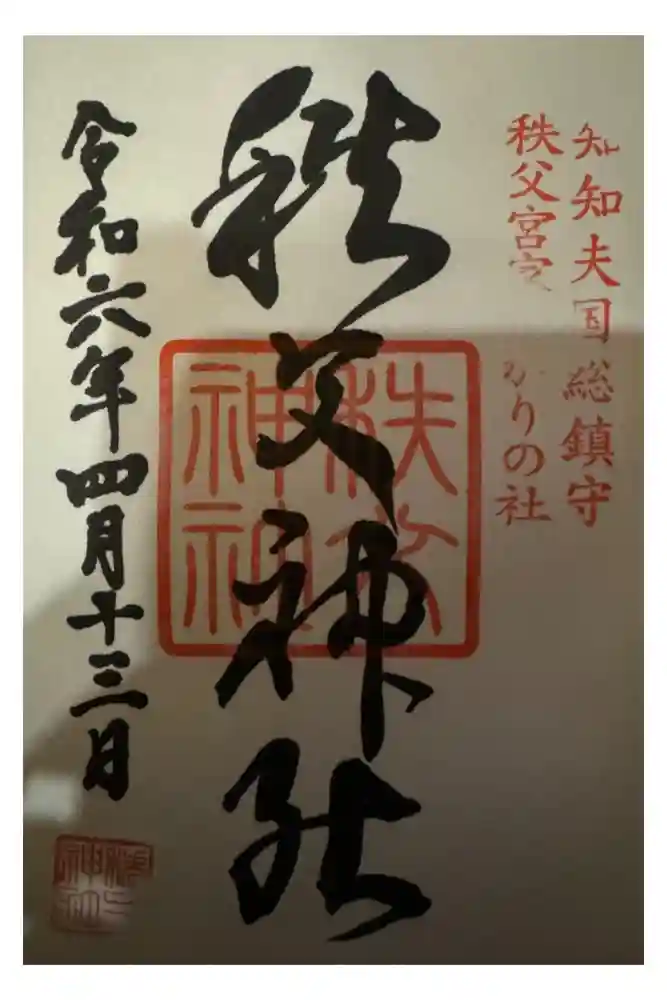 知知夫国総鎮守
秩父宮家 かりの社
秩父神社
秩父
神社
令和六年四月十三日